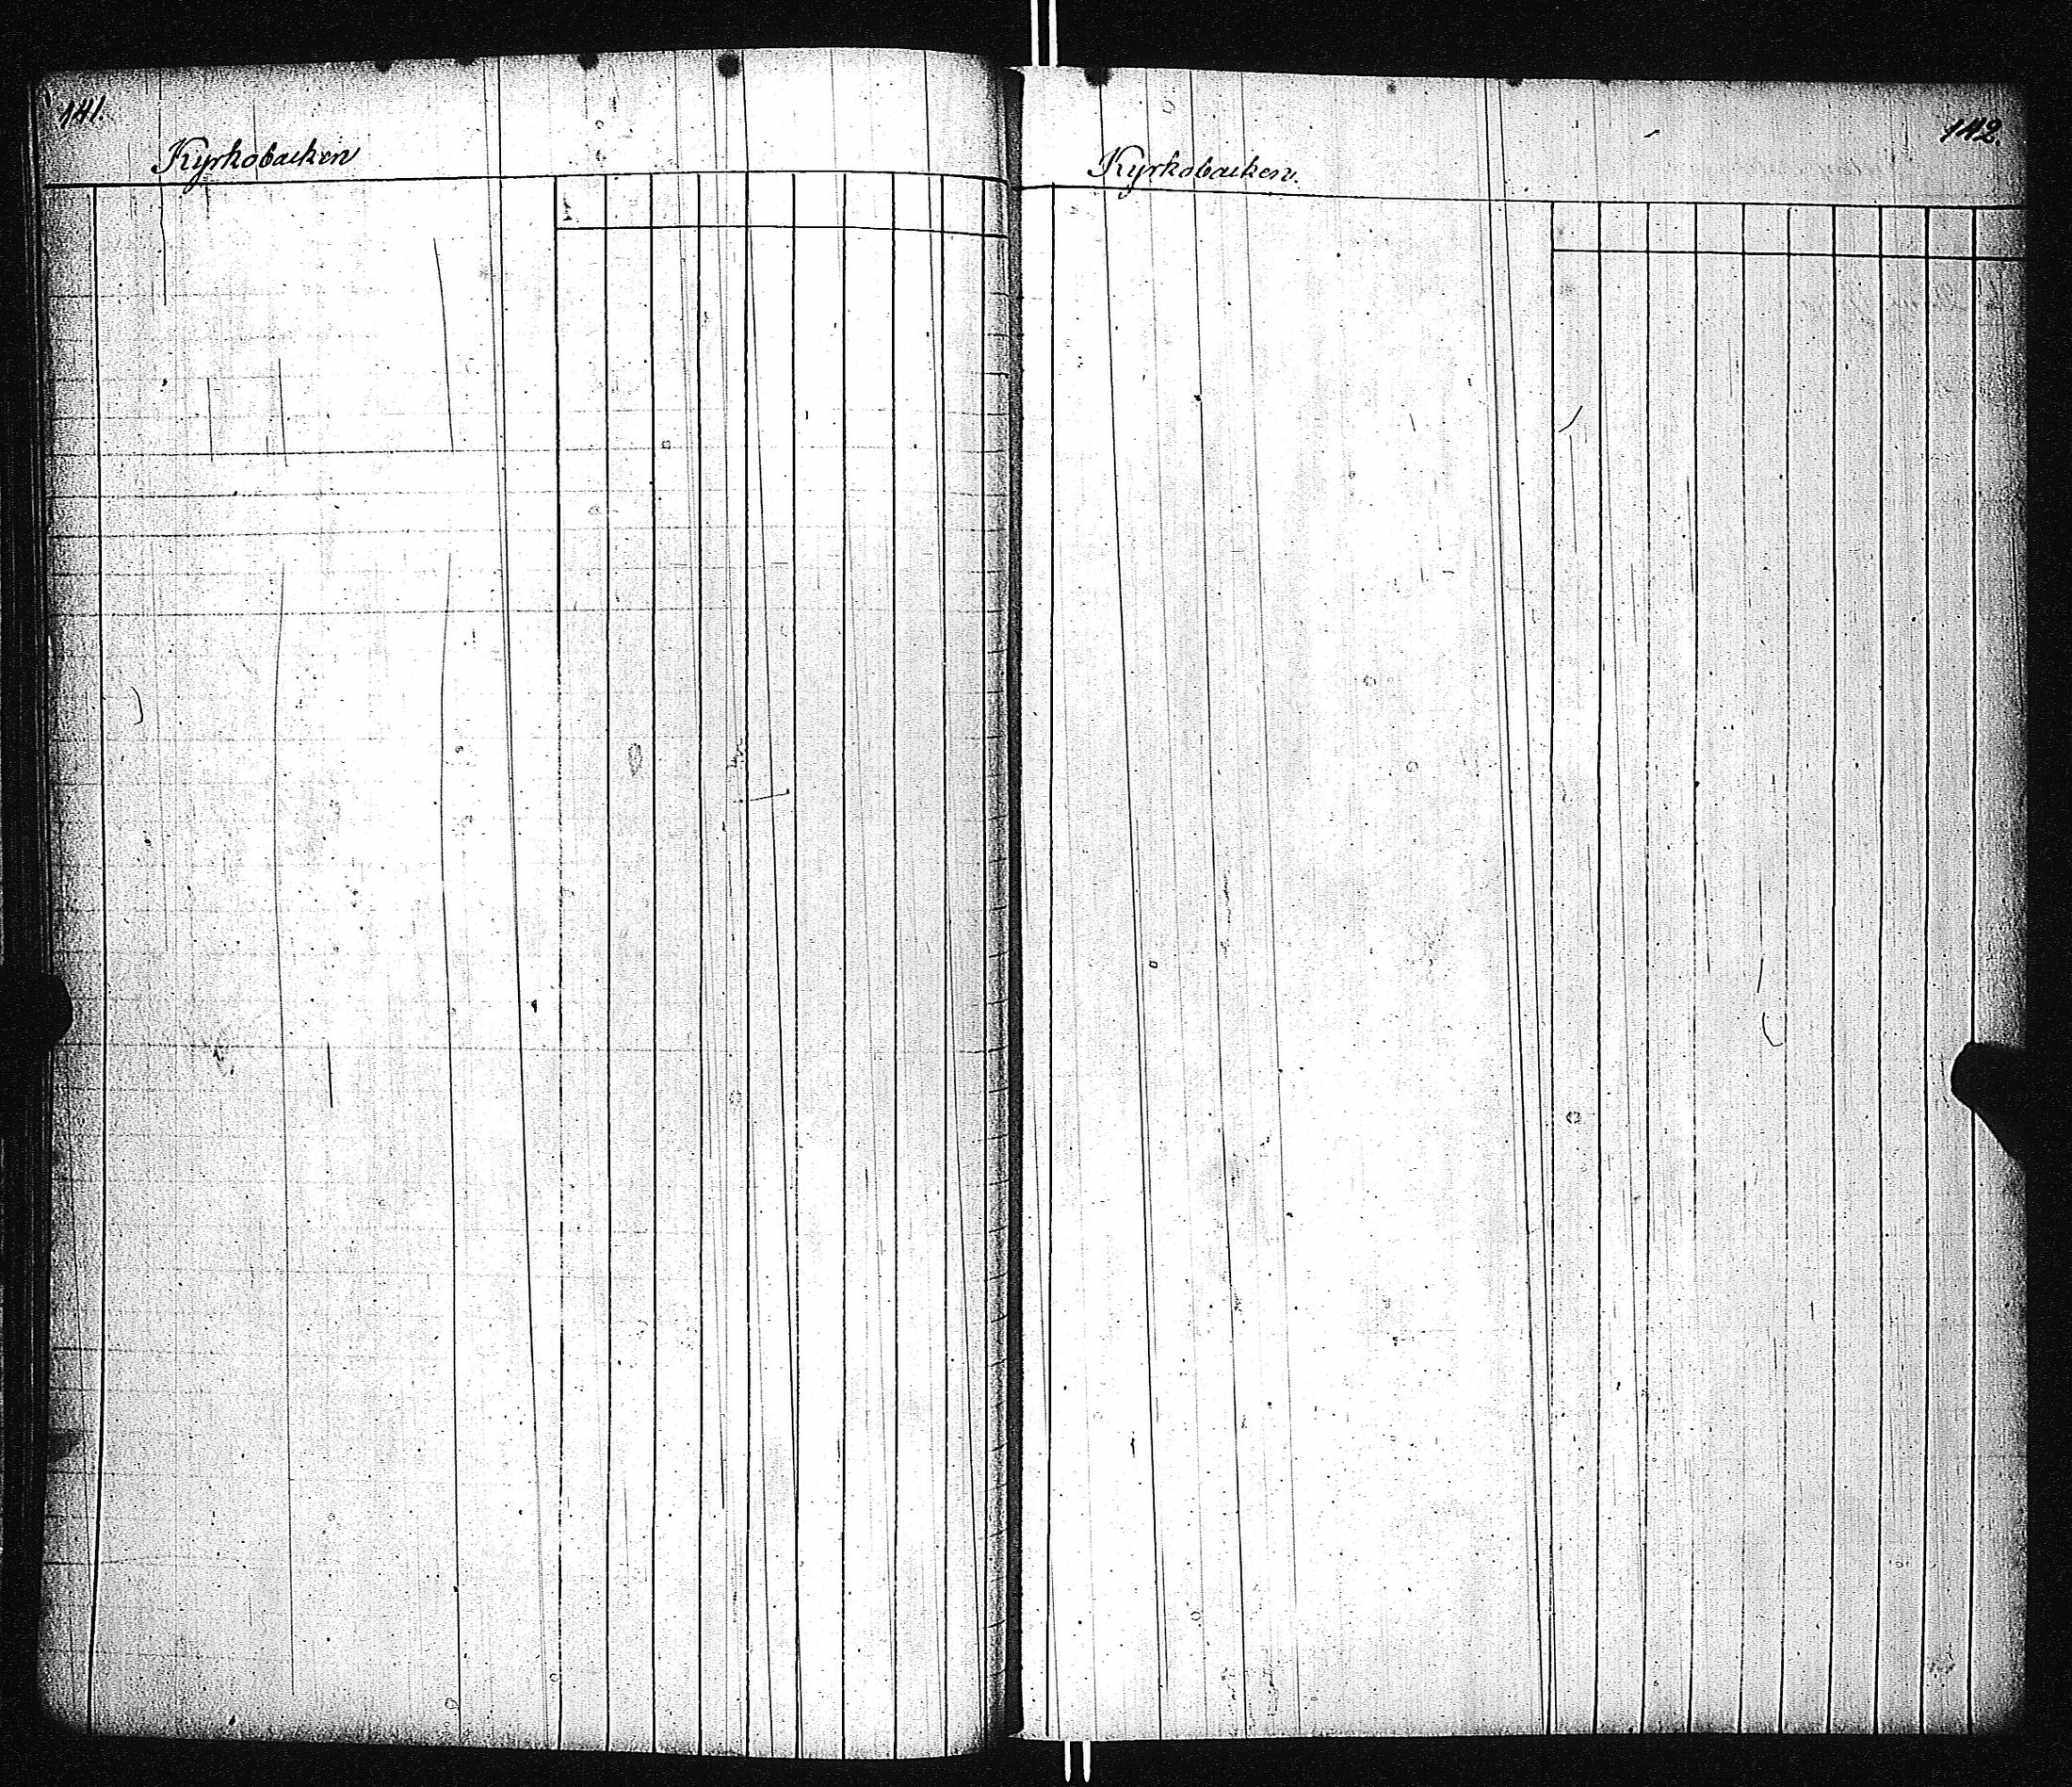 141.
Kyrkobacken
142.
Kyrkobacken.